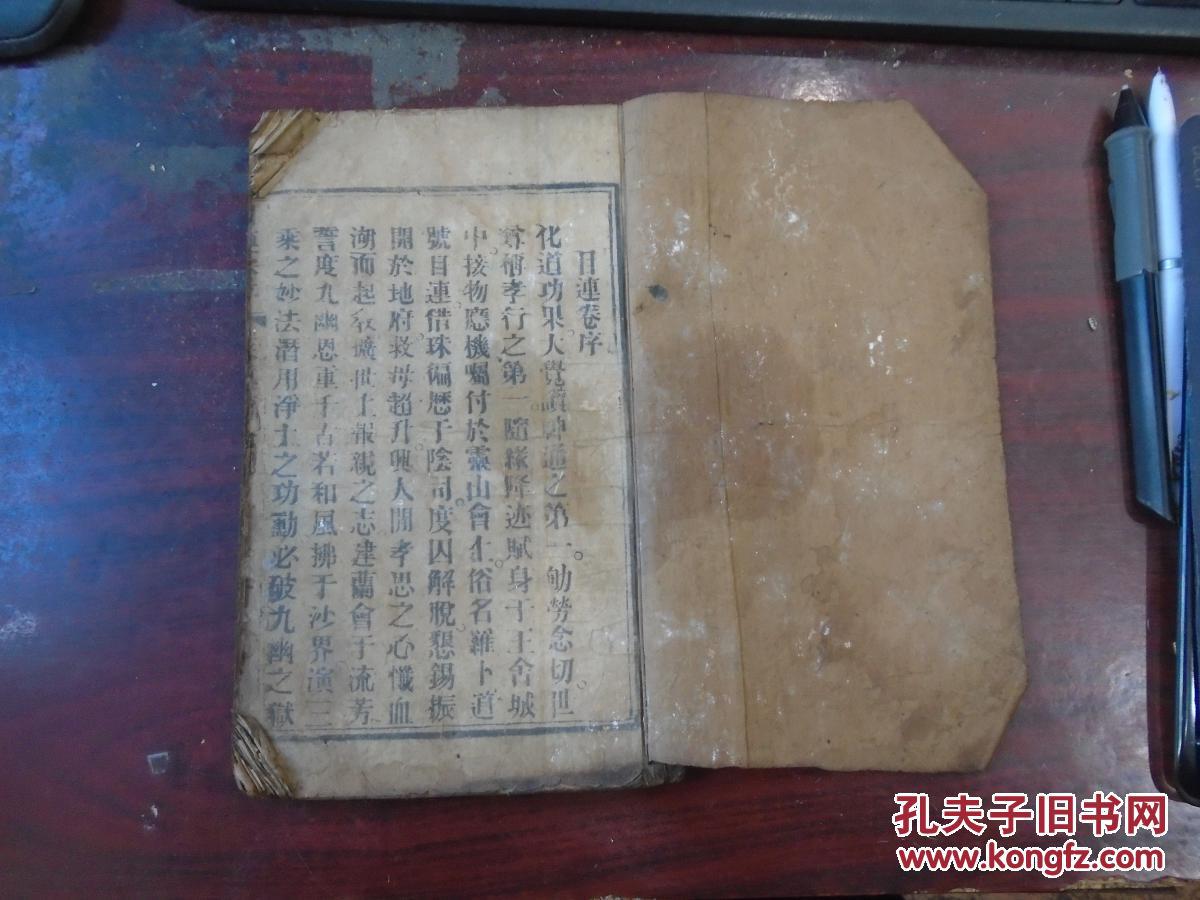 目連卷序
化道功果。人覺讚神通之第一。劬勞念切。世
尊稱孝行之第一隨緣降迹賦身于王舍城
中。接物應機囑付於靈山會上。俗名羅卜道
號目連。借珠徧歷于陰司。度囚解脫。懇錫振
開於地府。救母超升。興人間孝思之心懺血
湖而起教擴世上報親之志建蘭會于流芳
誓度九幽恩重千古若和風拂于沙界演三
乘之妙法潛用淨土之功勳必破九幽之獄
孔夫子旧书网
www.kongfz.com